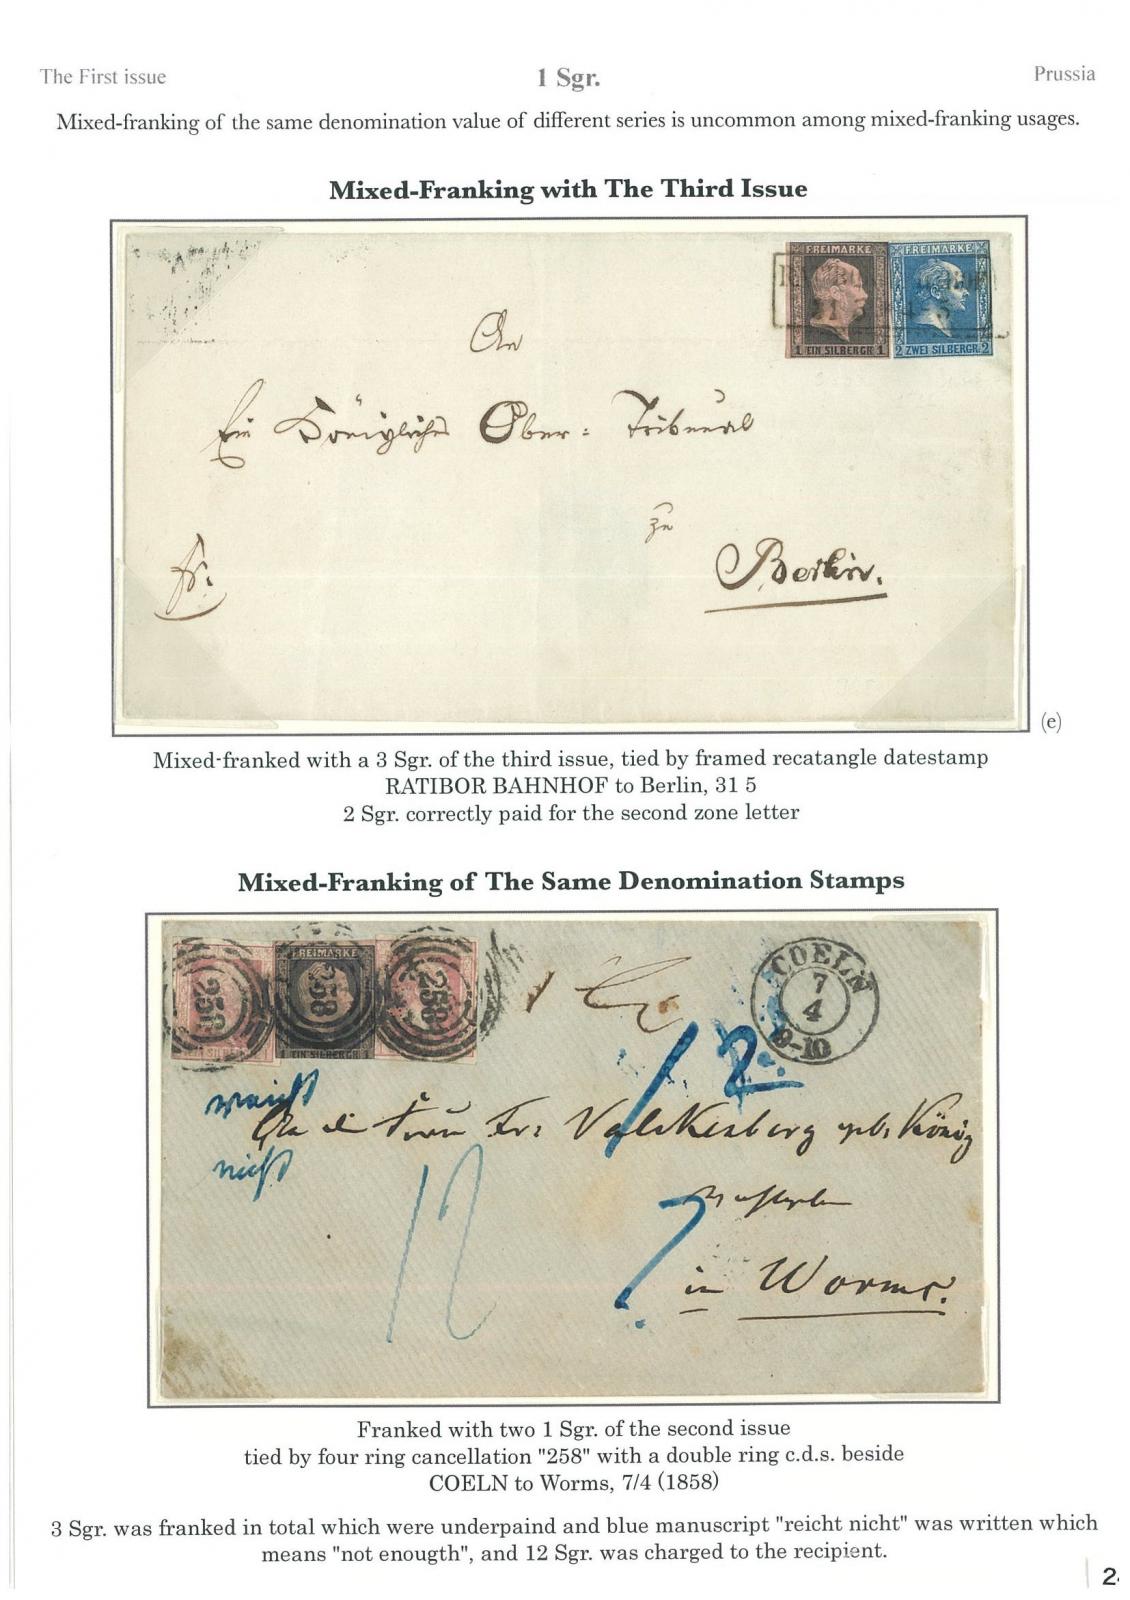 The First issue
1 Sgr.
Prussia
Mixed-franking of the same denomination value of different series is uncommon among mixed-franking usages.
Mixed-Franking with The Third Issue
FREIMARKE FREIMARKE
1 EIN SILBERGR. 1 2 ZWEI SILBERGR. 2
An
Ein Königliches Ober-Tribunal
zu
Berlin.
fr:
(e)
Mixed-franked with a 3 Sgr. of the third issue, tied by framed recatangle datestamp
RATIBOR BAHNHOF to Berlin, 31 5
2 Sgr. correctly paid for the second zone letter
Mixed-Franking of The Same Denomination Stamps
FREIMARKE
258 258 258
1 EIN SILBERGR. 1
COELN
7
4
9-10
2
reicht
nicht
Fr: Valckenberg geb. König
12
7
in Worms.
Franked with two 1 Sgr. of the second issue
tied by four ring cancellation "258" with a double ring c.d.s. beside
COELN to Worms, 7/4 (1858)
3 Sgr. was franked in total which were underpaind and blue manuscript "reicht nicht" was written which
means "not enougth", and 12 Sgr. was charged to the recipient.